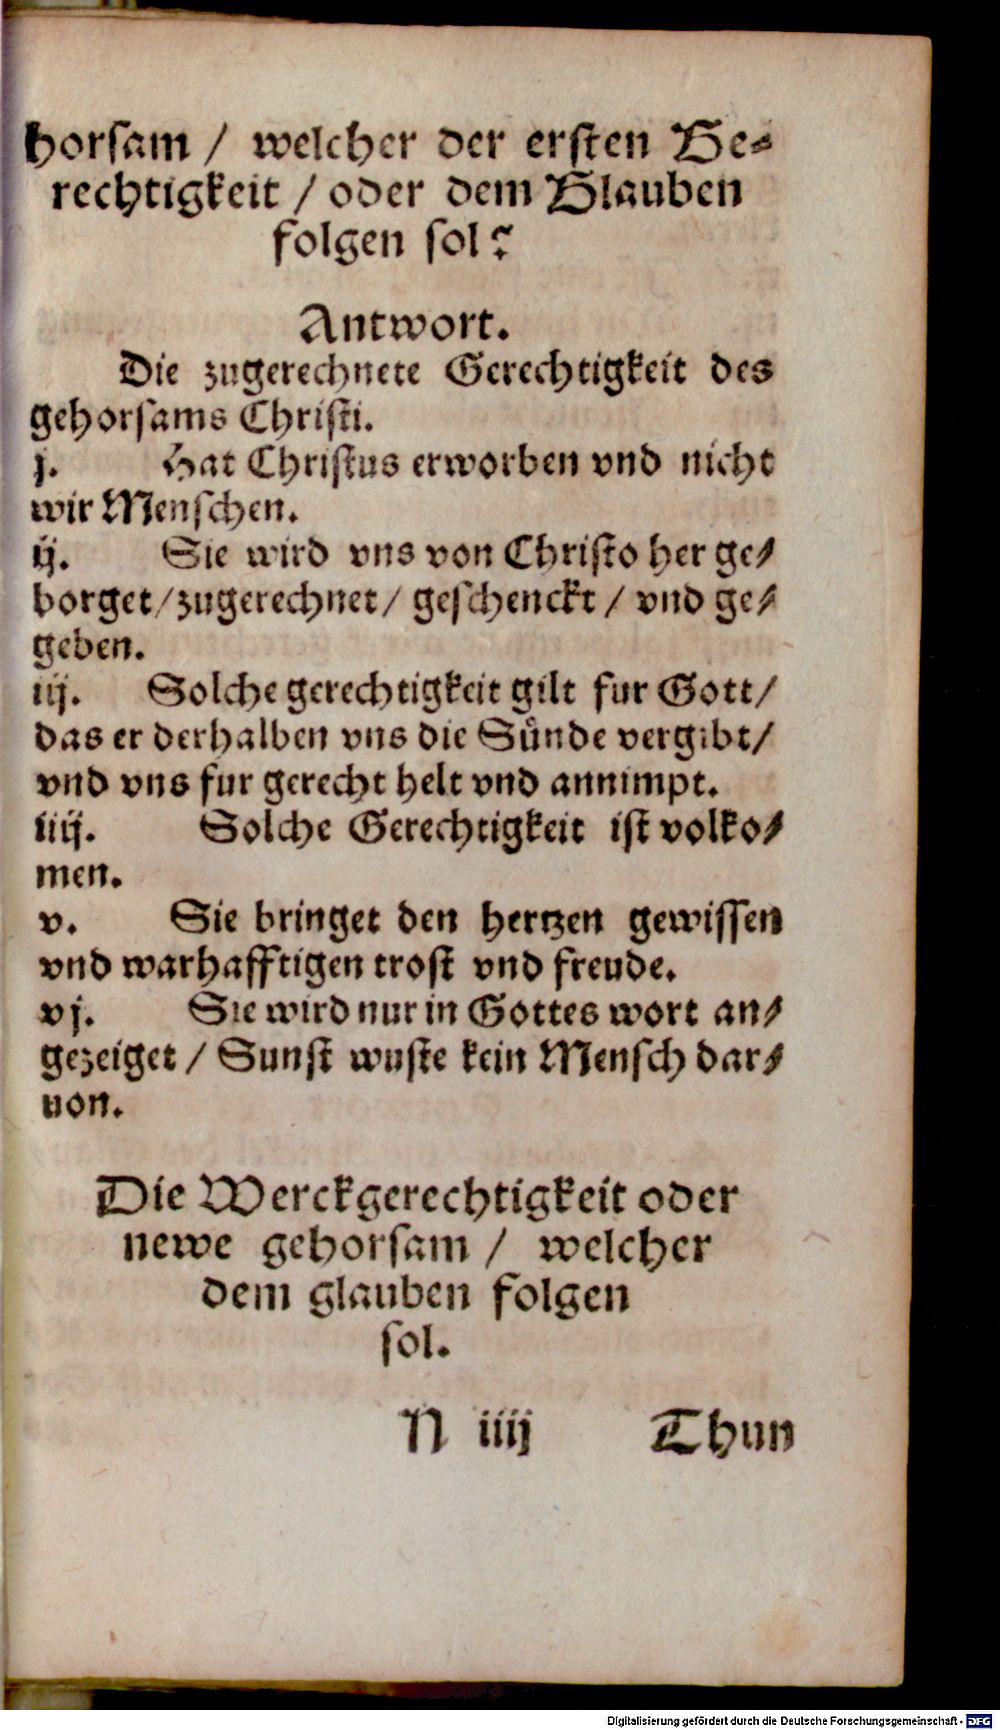 horsam / welcher der ersten Ge⸗
rechtigkeit / oder dem Glauben
folgen sol?
Antwort.
Die zugerechnete Gerechtigkeit des
gehorsams Christi.
j. Hat Christus erworben vnd nicht
wir Menschen.
ij. Sie wird vns von Christo her ge⸗
borget / zugerechnet / geschenckt / vnd ge⸗
geben.
iij. Solche gerechtigkeit gilt fur Gott /
das er derhalben vns die Sünde vergibt /
vnd vns fur gerecht helt vnd annimpt.
iiij. Solche Gerechtigkeit ist volko⸗
men.
v. Sie bringet den hertzen gewissen
vnd warhafftigen trost vnd freude.
vj. Sie wird nur in Gottes wort an⸗
gezeiget / Sunst wuste kein Mensch dar⸗
uon.
Die Werckgerechtigkeit oder
newe gehorsam / welcher
dem glauben folgen
sol.
N iiij Thun
Digitalisierung gefördert durch die Deutsche Forschungsgemeinschaft - DFG